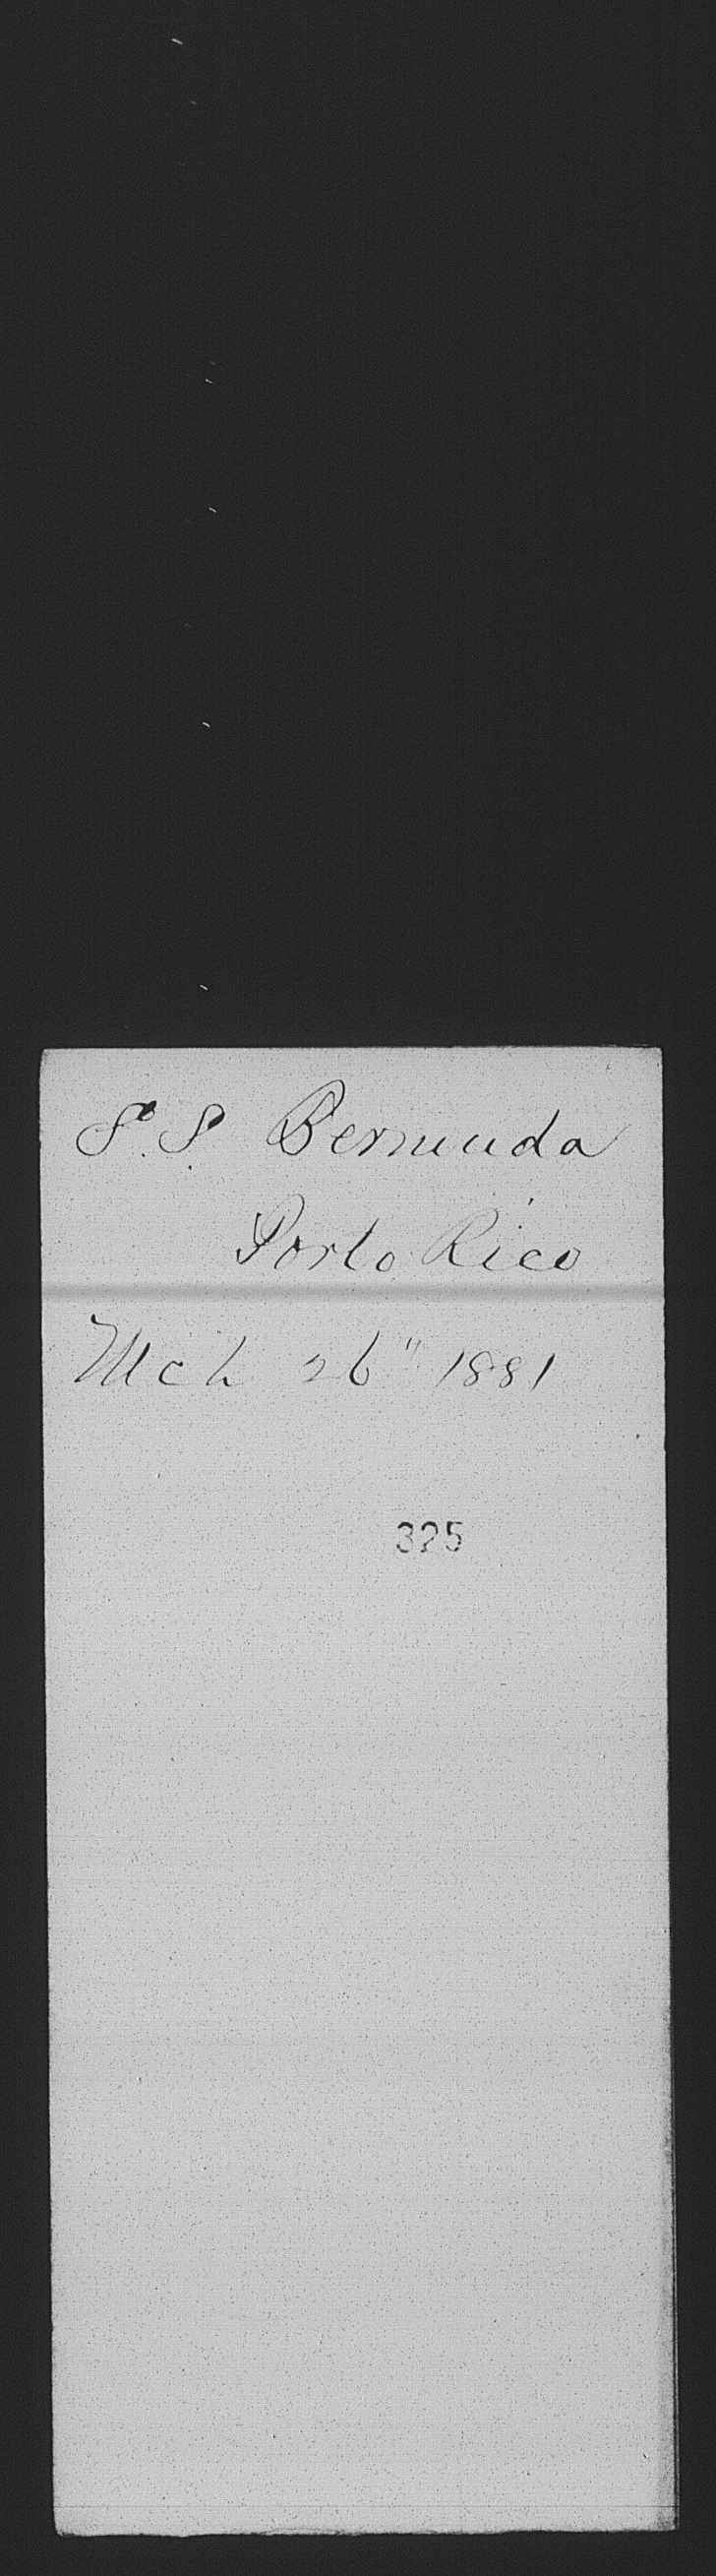 S. S. Bermuda
Porto Rico
Mch 26" 1881
325